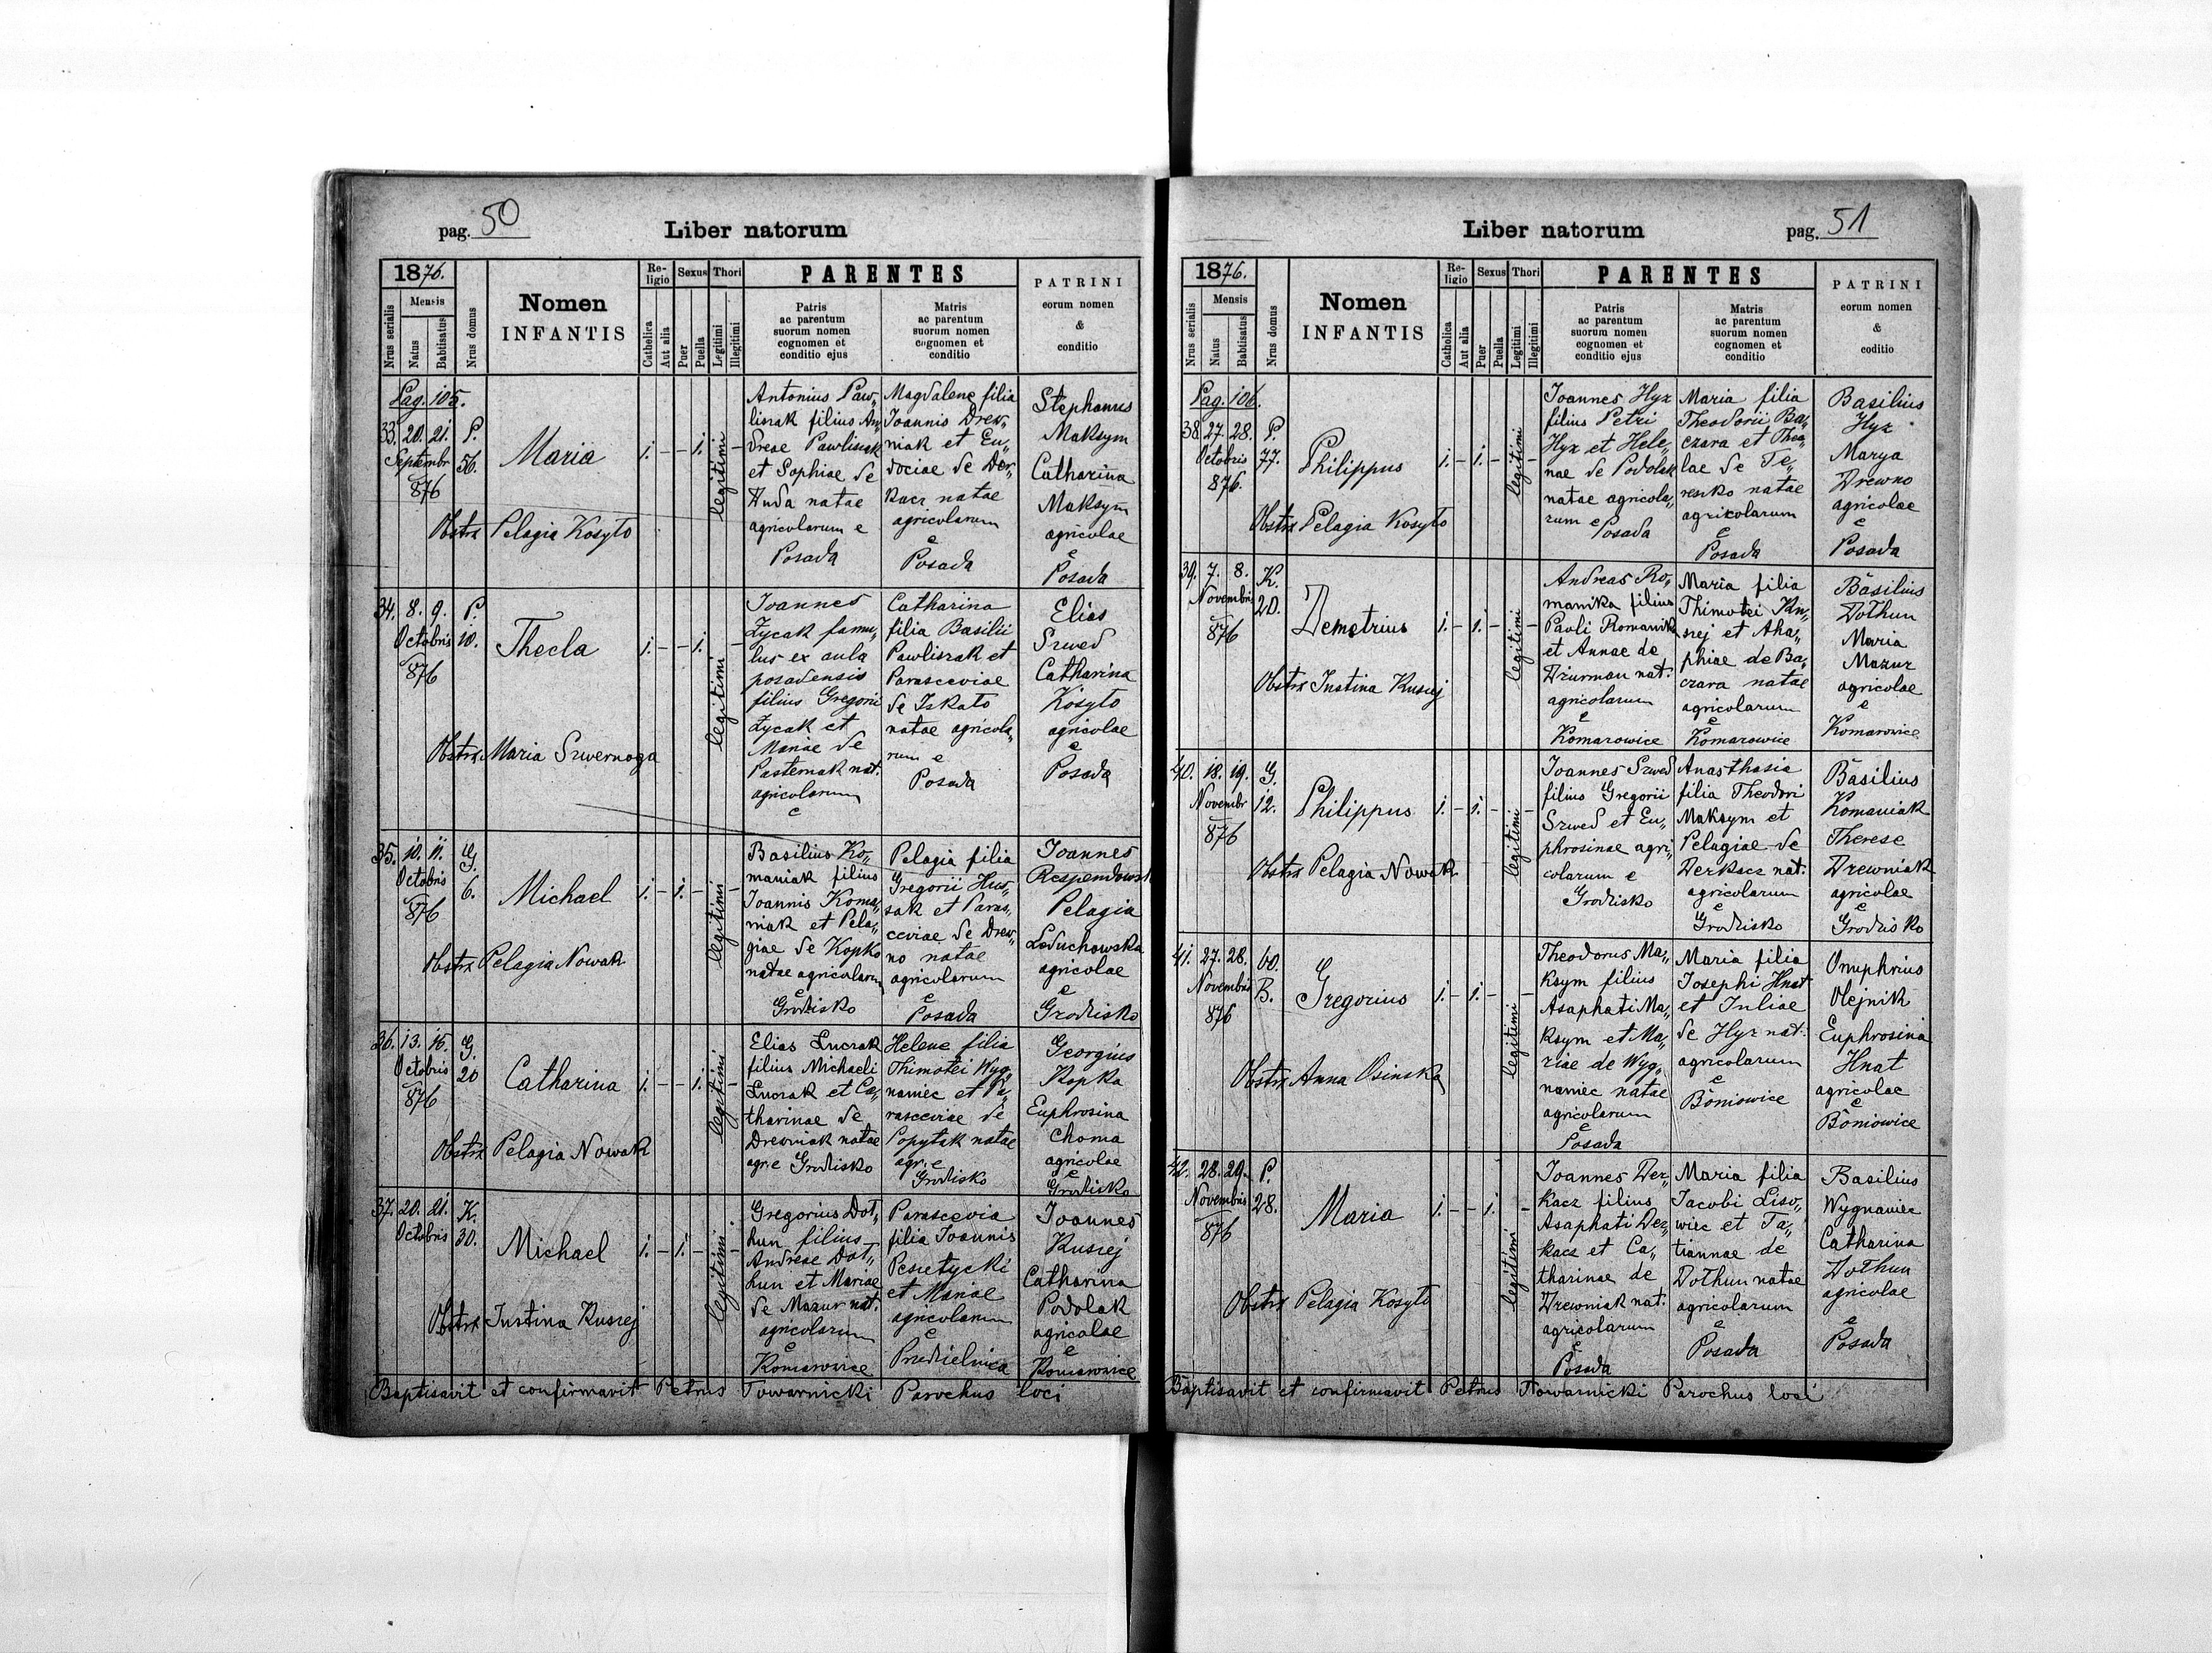 pag. 50
Liber natorum
1876.
Mensis
Nrus serialis
Natus
Babtisatus
Nrus domus
Nomen
INFANTIS
Re-
ligio
Catholica
Aut alia
Sexus
Puer
Puella
Thori
Legitimi
Illegitimi
PARENTES
Patris
ac parentum
suorum nomen
cognomen et
conditio ejus
Matris
ac parentum
suorum nomen
cognomen et
conditio
PATRINI
eorum nomen
&
conditio
Pag. 105.
33. 20. 21. P.
Septembr 56.
876
Maria
1. - - 1. legitimi -
Obstrx Pelagia Kosyło
Antonius Paw„
liszak filius An„
dreae Pawliszak
et Sophiae de
Duda natae
agricolarum e
Posada
Magdalene filia
Joannis Drew„
niak et Eu„
dociae de Der„
kacz natae
agricolarum
e
Posada
Stephanus
Maksym
Catharina
Maksym
agricolae
e
Posada
34. 8. 9. P.
Octobris 10.
876
Thecla
1. - - 1. legitimi -
Obstrx Maria Szwernoga
Joannes
Życak famu„
lus ex aula
posadensis
filius Gregorii
Życak et
Mariae de
Pasternak nat.
agricolarum
e
Catharina
filia Basilii
Pawliszak et
Parasceviae
de Iskato
natae agricola„
rum e
Posada
Elias
Szwed
Catharina
Kosyło
agricolae
e
Posada
35. 10. 11. G.
Octobris 6.
876
Michael
1. - 1. - legitimi -
Obstrx Pelagia Nowak
Basilius Ko„
maniak filius
Joannis Koma„
niak et Pela„
giae de Kopko
natae agricolarum
e
Grodzisko
Pelagia filia
Gregorii Hus„
sak et Paras„
ceviae de Drew„
no natae
agricolarum
e
Posada
Joannes
Respendowski
Pelagia
Leduchowska
agricolae
e
Grodzisko
36. 13. 15. G.
Octobris 20
876
Catharina
1. - - 1. legitimi -
Obstrx Pelagia Nowak
Elias Luczak
filius Michaeli
Luczak et Ca„
tharinae de
Drewniak natae
agr. e Grodzisko
Helene filia
Thimotei Wyg„
naniec et Pa„
rasceviae de
Popytak natae
agr. e
Grodzisko
Georgius
Kopka
Euphrosina
Choma
agricolae
e
Grodzisko
37. 20. 21. K.
Octobris 30.
Michael
1. - 1. - legitimi -
Obstrx Justina Kusiej
Gregorius Dot„
hun filius
Andreae Dot„
hun et Mariae
de Mazur nat.
agricolarum
e
Komarowice
Parascevia
filia Joannis
Pesietycki
et Mariae
agricolarum
e
Przedzielnica
Joannes
Kusiej
Catharina
Podolak
agricolae
e
Komarowice
Baptisavit et confirmavit Petrus Towarnicki Parochus loci
Liber natorum
pag. 51
1876.
Mensis
Nrus serialis
Natus
Babtisatus
Nrus domus
Nomen
INFANTIS
Re-
ligio
Catholica
Aut alia
Sexus
Puer
Puella
Thori
Legitimi
Illegitimi
PARENTES
Patris
ac parentum
suorum nomen
cognomen et
conditio ejus
Matris
ac parentum
suorum nomen
cognomen et
conditio
PATRINI
eorum nomen
&
coditio
Pag. 106.
38. 27. 28. P.
Octobris 77.
876.
Philippus
1. - 1. - legitimi -
Obstrx Pelagia Kosyło
Joannes Hyz
filius Petri
Hyz et Hele„
nae de Podolak
natae agricola„
rum e
Posada
Maria filia
Theodorii Ba„
czara et Thec„
lae de Te„
reszko natae
agricolarum
e
Posada
Basilius
Hyz
Marya
Drewno
agricolae
e
Posada
39. 7. 8. K.
Novembris 20.
876
Demetrius
1. - 1. - legitimi -
Obstrx Justina Kusiej
Andreas Ro„
manika filius
Pauli Romanik
et Annae de
Dziurman nat.
agricolarum
e
Komarowice
Maria filia
Thimotei Ku„
siej et Aha„
phiae de Ba„
czara natae
agricolarum
e
Komarowice
Basilius
Dothun
Maria
Mazur
agricolae
e
Komarowice
40. 18. 19. G.
Novembr 12.
876
Philippus
1. - 1. - legitimi -
Obstrx Pelagia Nowak
Joannes Szwed
filius Gregorii
Szwed et Eu„
phrosinae agri„
colarum e
Grodzisko
Anasthasia
filia Theodori
Maksym et
Pelagiae de
Derkacz nat.
agricolarum
e
Grodzisko
Basilius
Komaniak
Therese
Drewniak
agricolae
e
Grodzisko
41. 27. 28. 60.
Novembris B.
876
Gregorius
1. - 1. - legitimi -
Obstrx Anna Osinska
Theodorus Ma„
ksym filius
Asaphati Ma„
ksym et Ma„
riae de Wyg„
naniec natae
agricolarum
e
Posada
Maria filia
Josephi Hnat
et Juliae
de Hyz nat.
agricolarum
e
Boniowice
Onuphrius
Olejnik
Euphrosina
Hnat
agricolae
e
Boniowice
42. 28. 29. P.
Novembris 28.
876
Maria
1. - - 1. legitimi -
Obstrx Pelagia Kosyło
Joannes Der„
kacz filius
Asaphati Der„
kacz et Ca„
tharinae de
Drewniak nat.
agricolarum
e
Posada
Maria filia
Jacobi Liso„
wiec et Ta„
tiannae de
Dothun natae
agricolarum
e
Posada
Basilius
Wygnaniec
Catharina
Dothun
agricolae
e
Posada
Baptisavit et confirmavit Petrus Towarnicki Parochus loci